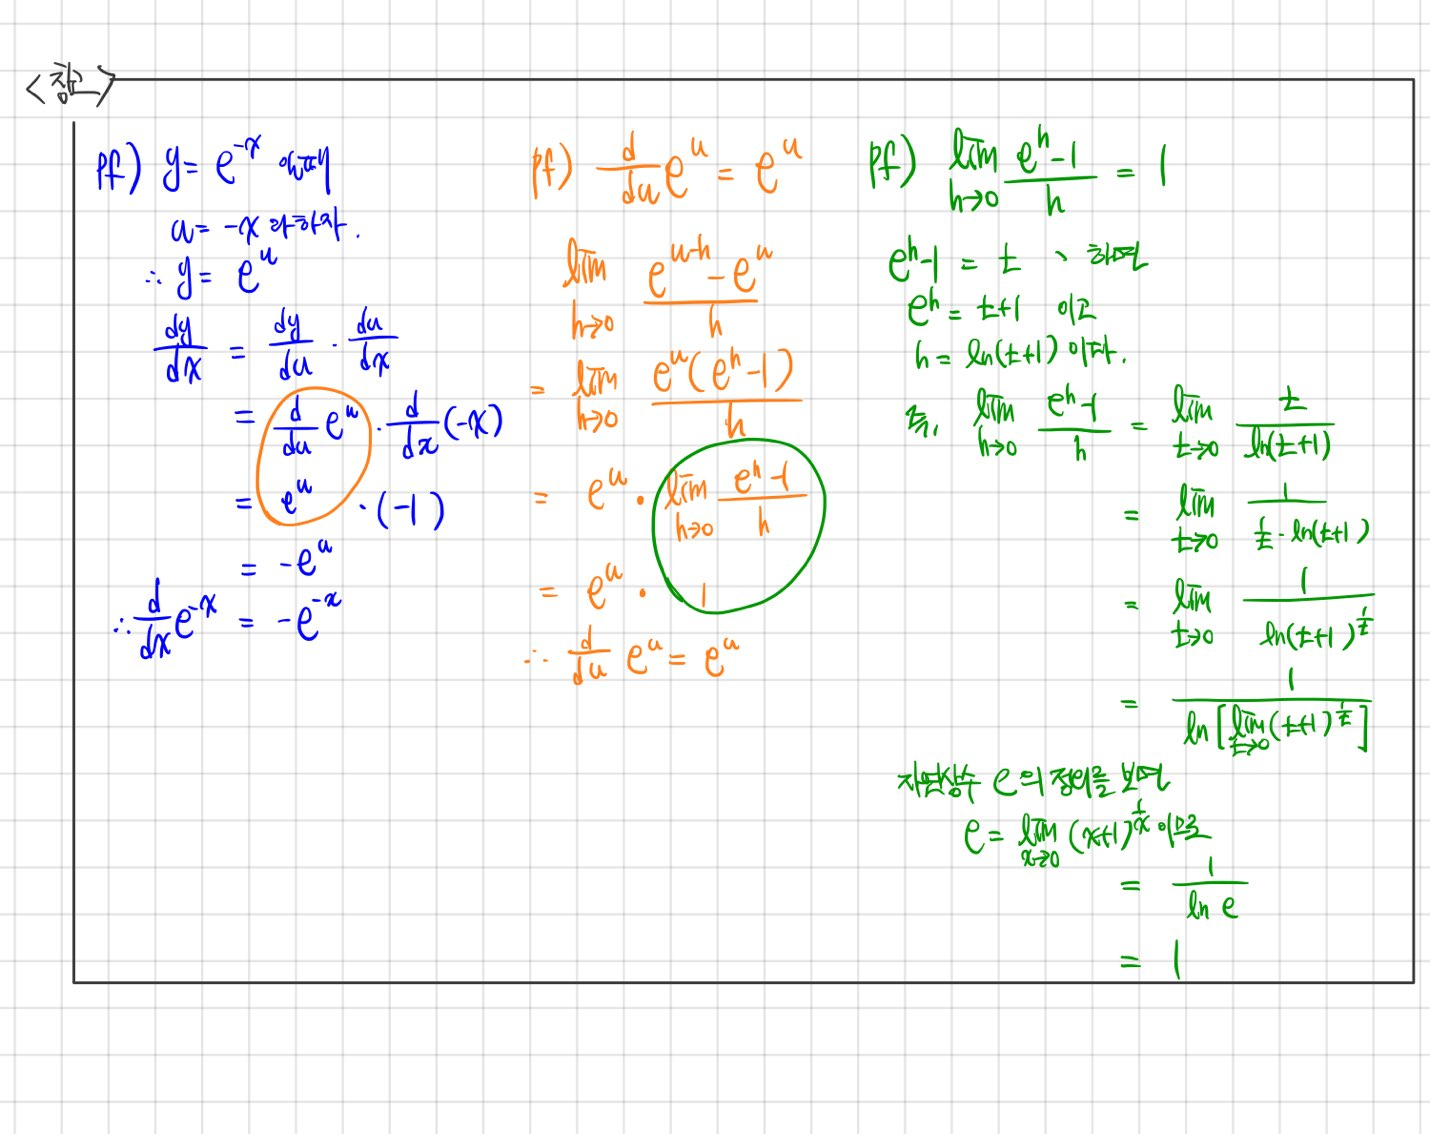 <참고>
pf) y = e^{-x} 에서
u = -x 라 하자.
∴ y = e^u
dy/dx = dy/du · du/dx
= d/du e^u · d/dx (-x)
= e^u · (-1)
= -e^u
∴ d/dx e^{-x} = -e^{-x}
pf) d/du e^u = e^u
lim_{h→0} (e^{u-h} - e^u)/h
= lim_{h→0} e^u(e^h - 1)/h
= e^u · lim_{h→0} (e^h - 1)/h
= e^u · 1
∴ d/du e^u = e^u
pf) lim_{h→0} (e^h - 1)/h = 1
e^h - 1 = t 하면
e^h = t+1 이고
h = ln(t+1) 이다.
즉, lim_{h→0} (e^h - 1)/h = lim_{t→0} t/ln(t+1)
= lim_{t→0} 1/(1/t · ln(t+1))
= lim_{t→0} 1/ln(t+1)^{1/t}
= 1/ln[lim_{t→0} (t+1)^{1/t}]
자연상수 e의 정의를 보면
e = lim_{x→0} (x+1)^{1/x} 이므로
= 1/ln e
= 1